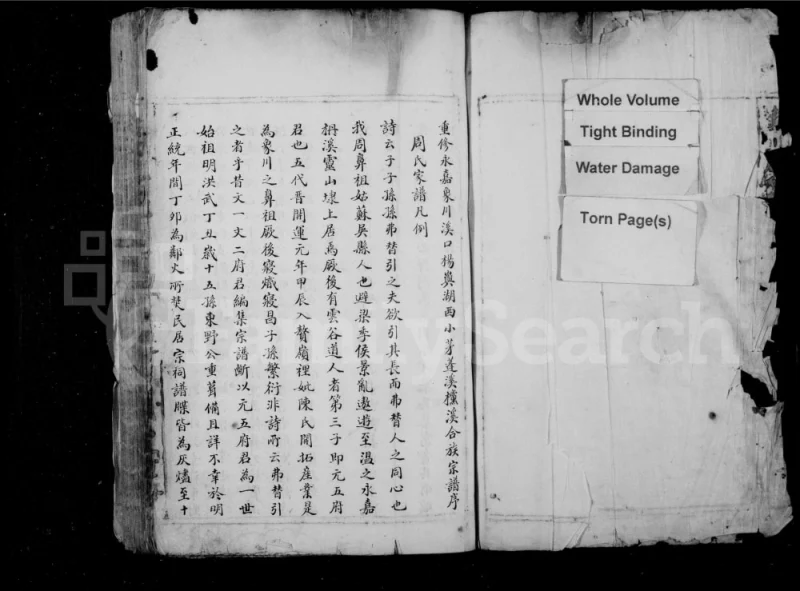 重修永嘉象川溪口楊奧湖西小芽蓬溪檡溪合族宗譜序
周氏家譜凡例
詩云子子孫孫弗替引之夫欲引其長而弗替人之同心也
我周鼻祖姑蘇吳縣人也避梁季侯景亂遨遊至溫之永嘉
柟溪靈山壊上居焉厥後有雲谷道人者第三子即元五府
君也五代晋開運元年甲辰入贅嶺裡妣陳氏開拓產業是
為象川之鼻祖厥後寢熾寢昌子孫繁衍非詩所云弗替引
之者乎昔文一文二府君編集宗譜斷以元五府君為一世
始祖明洪武丁丑歲十五孫東野公重葺備且詳不幸於明
正統年間丁卯為鄰火所焚民居宗祠譜牒皆為灰燼至十
Whole Volume
Tight Binding
Water Damage
Torn Page(s)